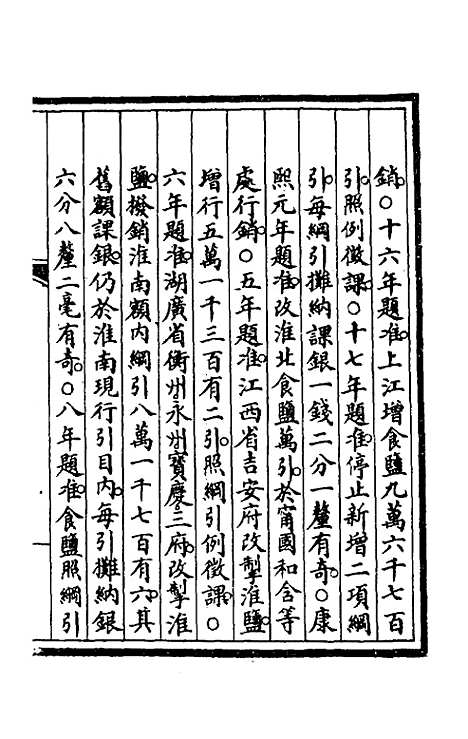 銷○十六年題准上江增食鹽九萬六千七百
引照例徵課○十七年題准停止新增二項綱
引每綱引攤納課銀一錢二分一釐有奇○康
熙元年題准改淮北食鹽萬引於甯國和含等
處行銷○五年題准江西省吉安府改掣淮鹽
增行五萬一千三百有二引照綱引例徵課○
六年題准湖廣省衡州永州寶慶三府改掣淮
鹽撥銷淮南額內綱引八萬一千七百有六其
舊額課銀仍於淮南現行引目內每引攤納銀
六分八釐二毫有奇○八年題准食鹽照綱引